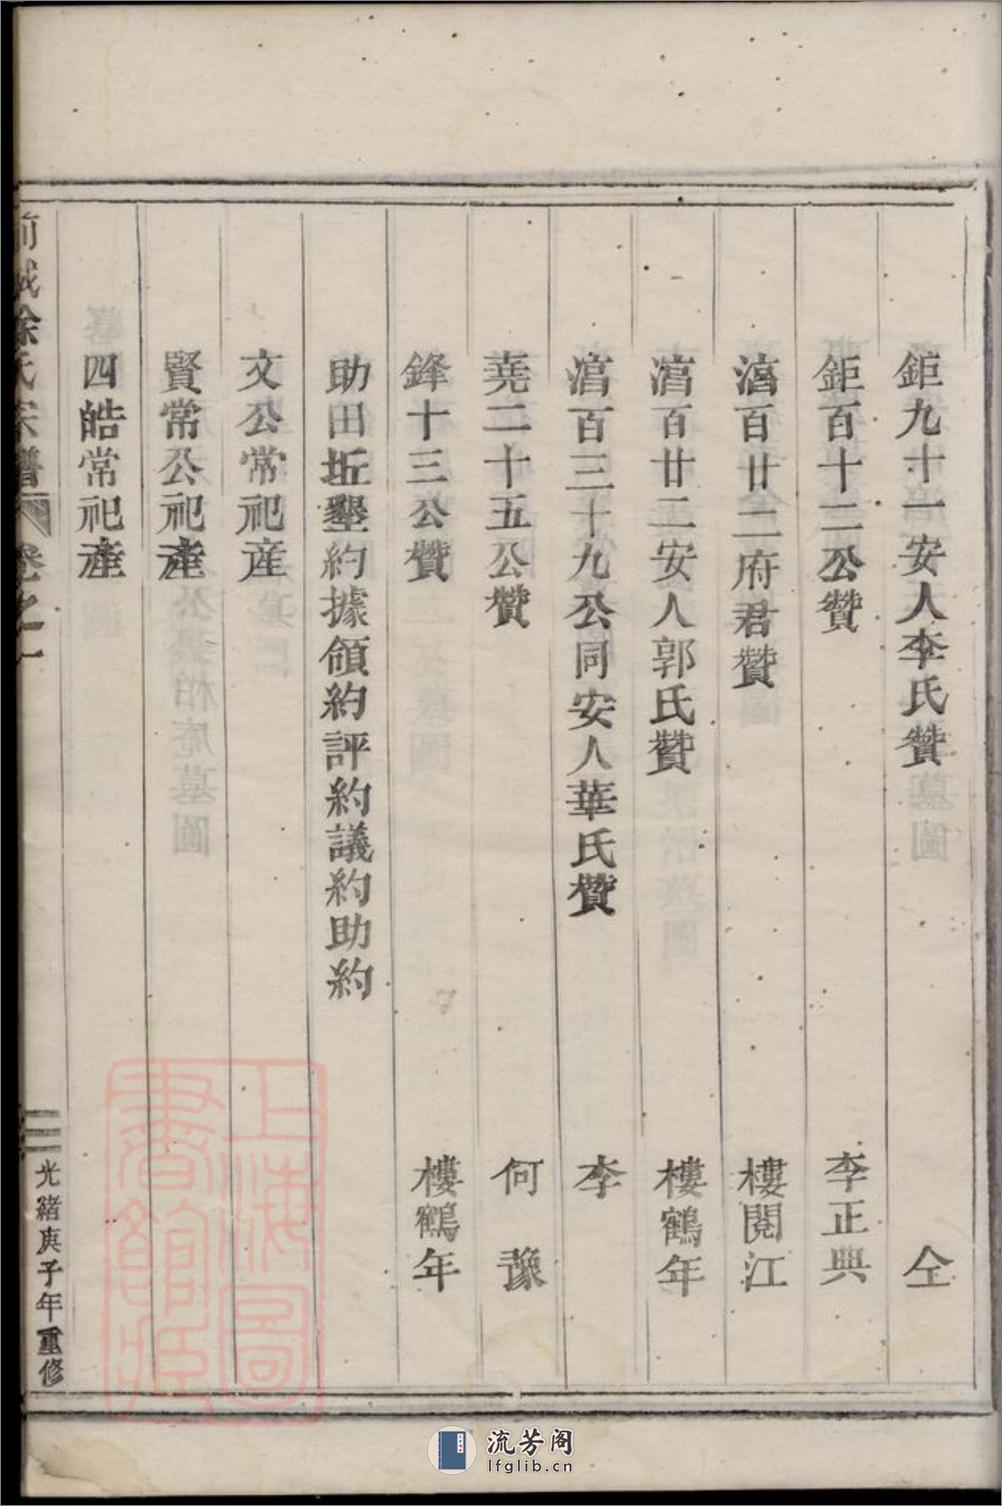 鉅九十一安人李氏贊 仝
鉅百十二公贊 李正典
濇百廿二府君贊 樓閱江
濇百廿二安人郭氏贊 樓鶴年
濇百三十九公同安人華氏贊 李
堯二十五公贊 何豫
鋒十三公贊 樓鶴年
助田坵墾約據領約評約議約助約
文公常祀産
賢常公祀產
四皓常祀產
徐氏宗譜 卷之一
二 光緒庚子年重修
上海圖書館藏
流芳阁
lfglib.cn